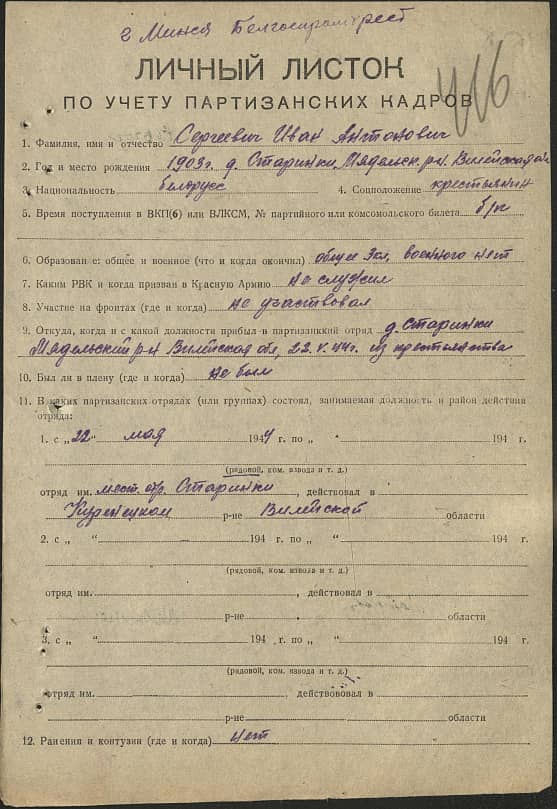 г Минск Белгоспромтрест
ЛИЧНЫЙ ЛИСТОК
ПО УЧЕТУ ПАРТИЗАНСКИХ КАДРОВ
1. Фамилия, имя и отчество Сергеевич Иван Антонович
2. Год и место рождения 1903г. д. Старинки, Мядельск. р-н. Вилейской об
3. Национальность белорусс 4. Соцположение крестьянин
5. Время поступления в ВКП(б) или ВЛКСМ, № партийного или комсомольского билета б/п
6. Образован е: общее и военное (что и когда окончил) общее 3кл, военного нет
7. Каким РВК и когда призван в Красную Армию не служил
8. Участие на фронтах (где и когда) не участвовал
9. Откуда, когда и с какой должности прибыл в партизанский отряд д. Старинки
Мядельский р-н Вилейская обл, 22.V.44г. из крестьянства
10. Был ли в плену (где и когда) не был
11. В каких партизанских отрядах (или группах) состоял, занимаемая должность и район действия
отряда:
1. с „22" мая 1944 г. по „ " 194 г.
(рядовой, ком. взвода и т. д.)
отряд им. мест. отр. Старинки, действовал в
Куренецком р-не Вилейской области
2. с „ " 194 г. по „ " 194 г.
(рядовой, ком. взвода и т. д.)
отряд им. , действовал в
р-не области
3. с „ " 194 г. по „ " 194 г.
(рядовой, ком. взвода и т. д.)
отряд им. , действововал в
р-не области
12. Ранения и контузии (где и когда) нет